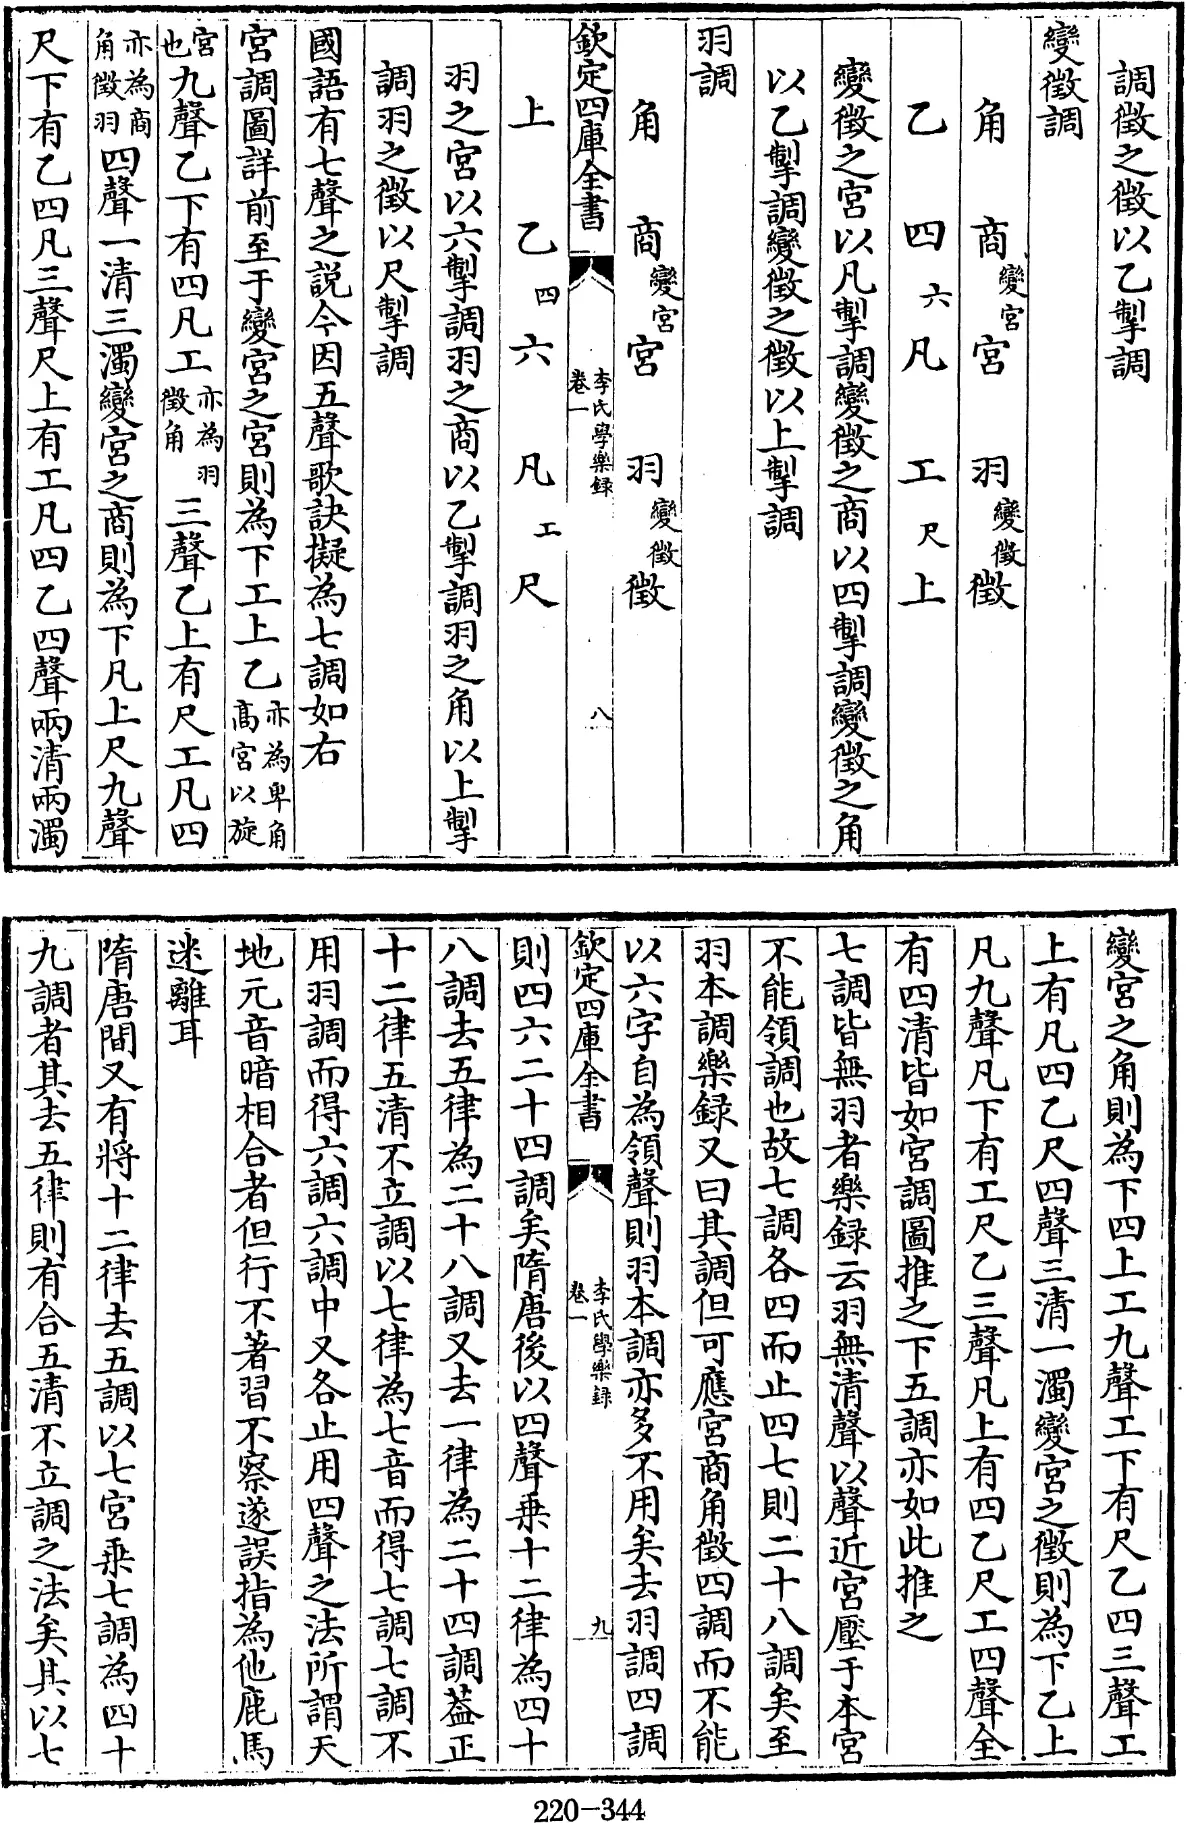 調徵之徵以乙掣調
變徵調
角　商變宮宮　羽變徵徵
乙　四六凡　工尺上
變徵之宮以凡掣調變徵之商以四掣調變徵之角
以乙掣調變徵之徵以上掣調
羽調
角　商變宮宮　羽變徵徵
欽定四庫全書　李氏學樂録卷一　八
上　乙四六　凡工尺
羽之宮以六掣調羽之商以乙掣調羽之角以上掣
調羽之徵以尺掣調
國語有七聲之説今因五聲歌訣擬為七調如右
宮調圖詳前至于變宮之宮則為下工上乙亦為卑角高宮以旋
宮也九聲乙下有四凡工亦為羽徵角三聲乙上有尺工凡四
亦為商角徵羽四聲一清三濁變宮之商則為下凡上尺九聲
尺下有乙四凡三聲尺上有工凡四乙四聲兩清兩濁
變宮之角則為下四上工九聲工下有尺乙四三聲工
上有凡四乙尺四聲三清一濁變宮之徵則為下乙上
凡九聲凡下有工尺乙三聲凡上有四乙尺工四聲全
有四清皆如宮調圖推之下五調亦如此推之
七調皆無羽者樂録云羽無清聲以聲近宮壓于本宮
不能領調也故七調各四而止四七則二十八調矣至
羽本調樂録又曰其調但可應宮商角徵四調而不能
以六字自為領聲則羽本調亦多不用矣去羽調四調
欽定四庫全書　李氏學樂録卷一　九
則四六二十四調矣隋唐後以四聲乗十二律為四十
八調去五律為二十八調又去一律為二十四調葢正
十二律五清不立調以七律為七音而得七調七調不
用羽調而得六調六調中又各止用四聲之法所謂天
地元音暗相合者但行不著習不察遂誤指為他鹿馬
迷離耳
隋唐間又有將十二律去五調以七宮乗七調為四十
九調者其去五律則有合五清不立調之法矣其以七
220-344